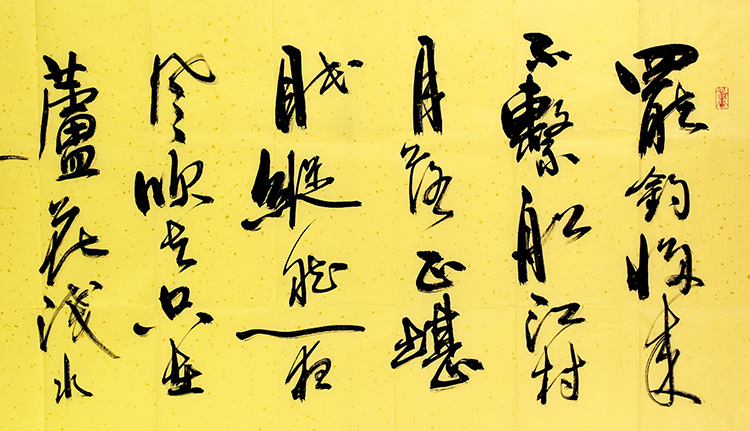 罷釣歸來
不繫船江村
月落正堪
眠縱然一夜
風吹去只在
蘆花淺水